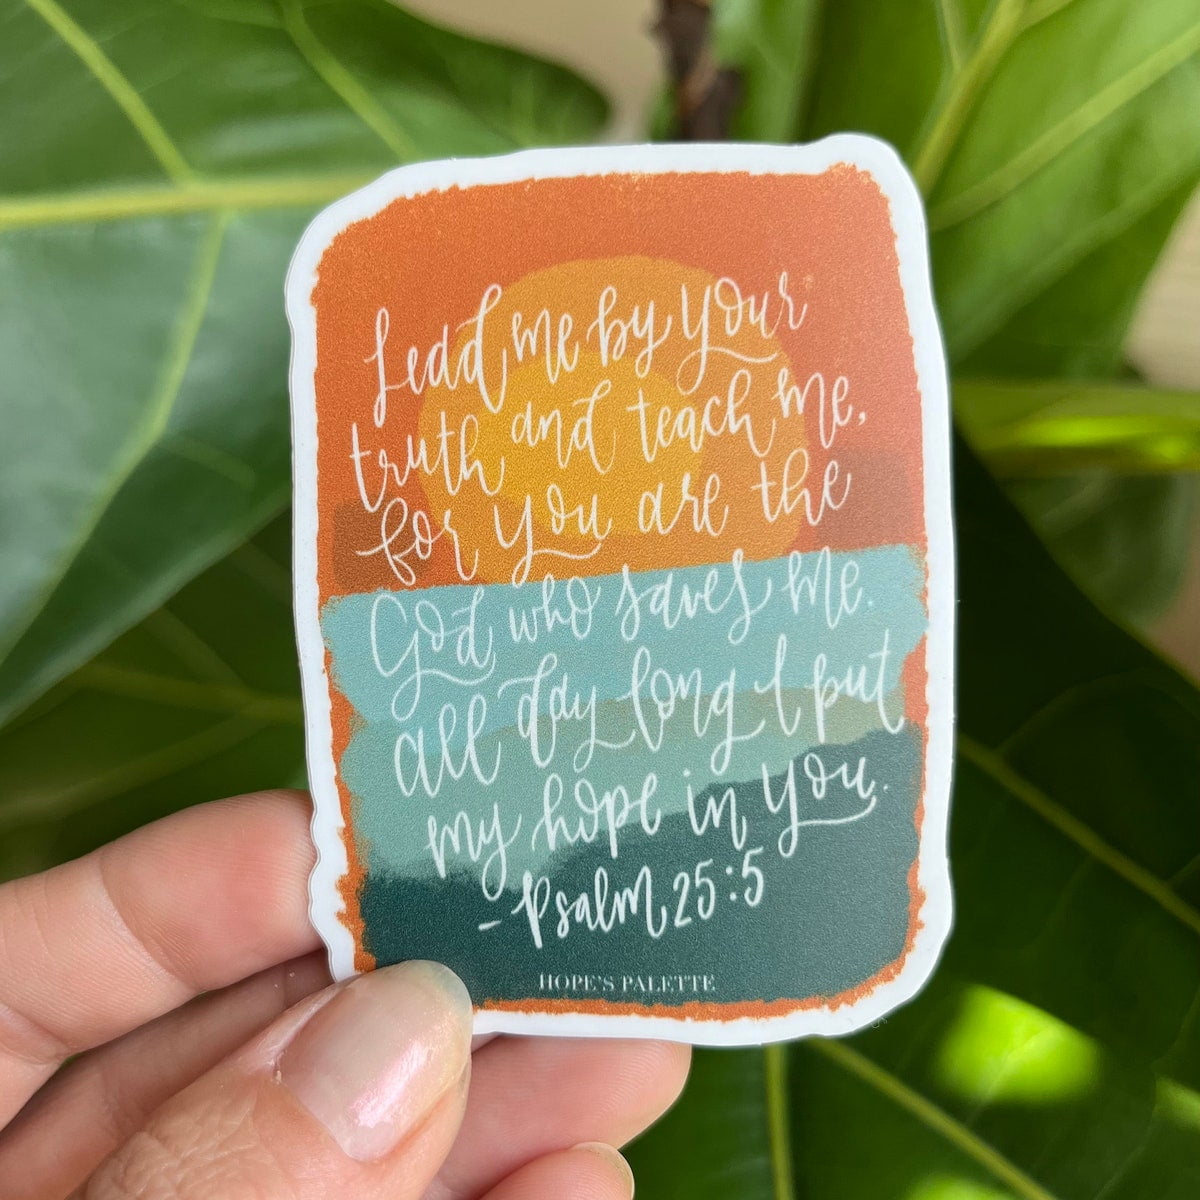 Lead me by your
truth and teach me,
for you are the
God who saves me.
all day long I put
my hope in you.
- Psalm 25:5
HOPE'S PALETTE